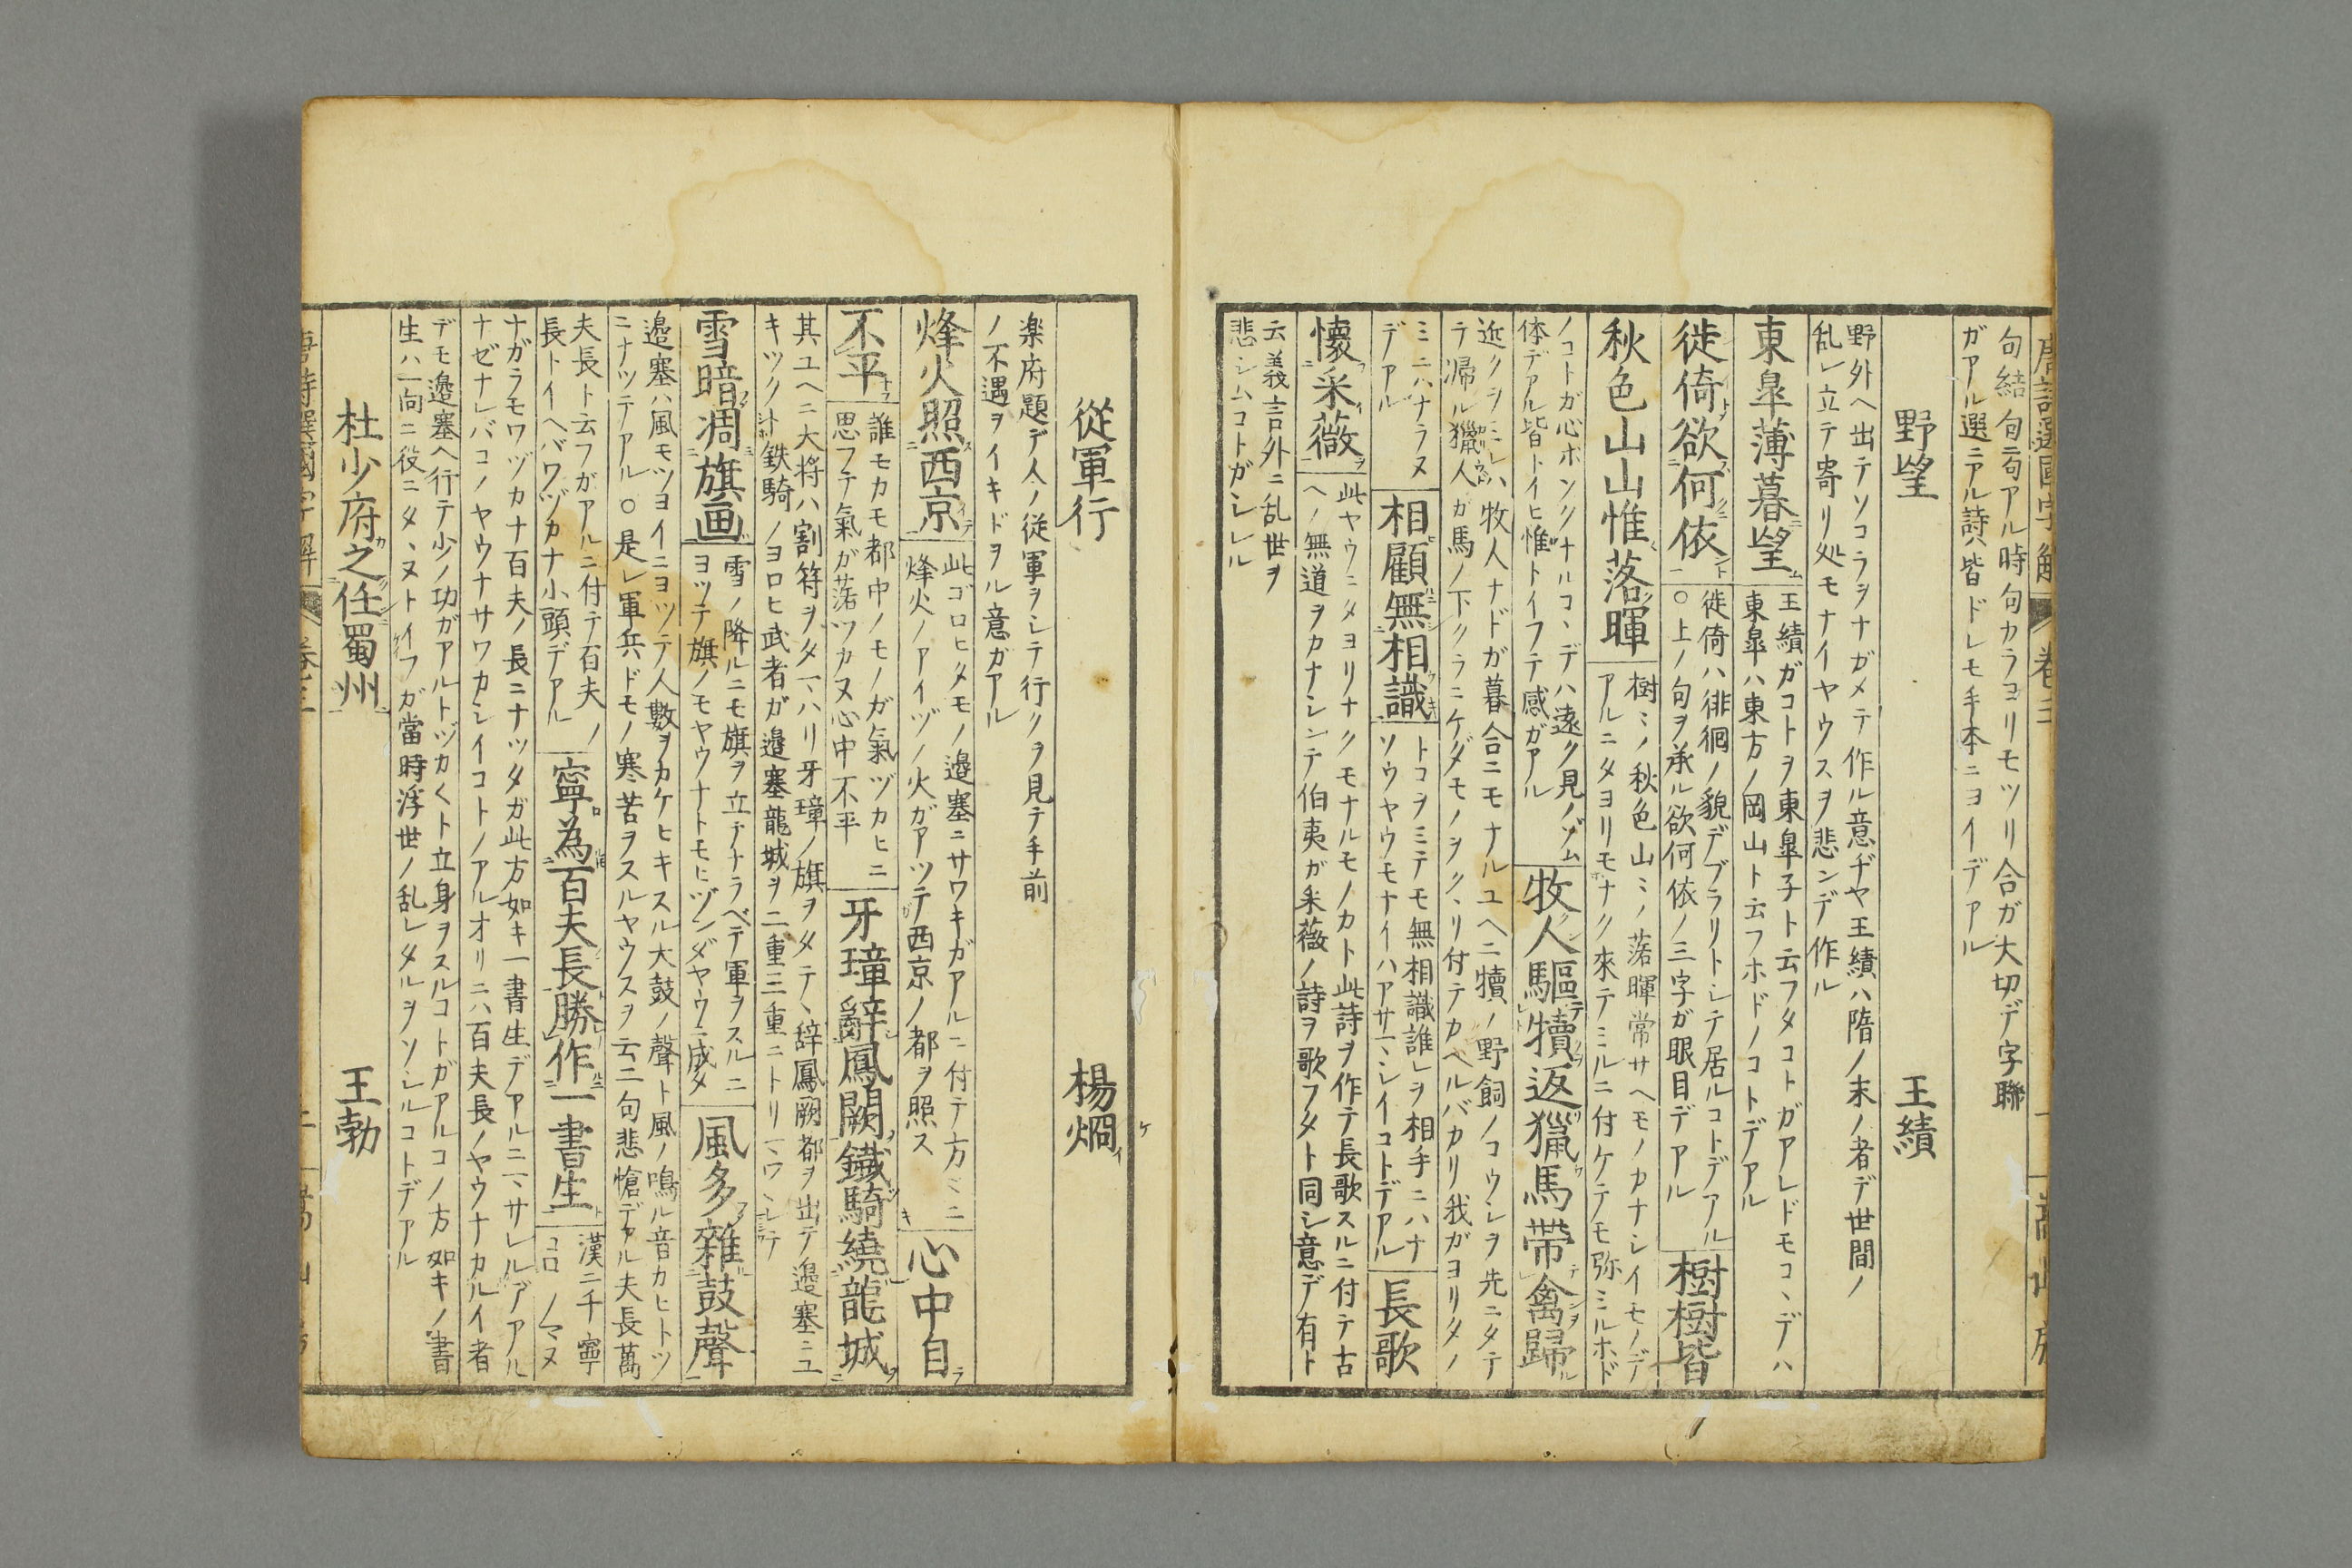 唐詩選國字解 卷三
句結句ニ句アル時句カラコリモツリ合ガ大切デ字聯
ガアル選ニアル詩ハ皆ドレモ手本ニヨイデアル
野望 王績
野外ヘ出テソコラヲナガメテ作ル意ヂヤ王績ハ隋ノ末ノ者デ世間ノ
乱レ立テ寄リ処モナイヤウスヲ悲ンデ作ル
東皐薄暮望
王績ガコトヲ東皐子ト云フタコトガアレドモコヽデハ
東皐ハ東方ノ岡山ト云フホドノコトデアル
徙倚欲何依
徙倚ハ徘徊ノ貌デブラリトシテ居ルコトデアル
○上ノ句ヲ承ル欲何依ノ三字ガ眼目デアル
樹樹皆
秋色山山惟落暉
樹ミノ秋色山ミノ落暉常サヘモノカナシイモノデ
アルニタヨリモナク來テミルニ付ケテモ弥ミルホド
ノコトガ心ボソクナルコヽデハ遠ク見ノゾム
体デアル皆トイヒ惟トイフテ感ガアル
牧人驅犢返獵馬帶禽歸
近クヲミレハ牧人ナドガ暮合ニモナルユヘニ犢ノ野飼ノコウシヲ先ニタテ
テ帰ル獵人ガ馬ノ下クラニケダモノヲクヽリ付テカヘルバカリ我ガヨリタノ
ミニハナラヌ
デアル
相顧無相識
トコヲミテモ無相識誰レヲ相手ニハナ
ソウヤウモナイハアサマシイコトデアル
長歌
懐采薇
此ヤウニタヨリナクモナルモノカト此詩ヲ作テ長歌スルニ付テ古
ヘノ無道ヲカナシンテ伯夷ガ采薇ノ詩ヲ歌フタト同シ意デ有ト
云義言外ニ乱世ヲ
悲シムコトガシレル
從軍行 楊烱
楽府題デ人ノ從軍ヲシテ行クヲ見テ手前
ノ不遇ヲイキドヲル意ガアル
烽火照西京
此ゴロヒタモノ邉塞ニサワキガアルニ付テ方ミニ
烽火ノアイヅノ火ガアツテ西京ノ都ヲ照ス
心中自
不平
誰モカモ都中ノモノガ氣ヅカヒニ
思フテ氣ガ落ツカヌ心中不平
牙璋辭鳳闕鐵騎繞龍城
其ユヘニ大将ハ割符ヲタマハリ牙璋ノ旗ヲタテヽ辞鳳闕都ヲ出テ邉塞ニユ
キツク鉄騎ノヨロヒ武者ガ邉塞龍城ヲ二重三重ニトリマワシテ
雪暗凋旗画
雪ノ降ルニモ旗ヲ立テナラベテ軍ヲスルニ
ヨツテ旗ノモヤウナトモヒヅンダヤウニ成タ
風多雜鼓聲
邉塞ハ風モツヨイニヨツテ人數ヲカケヒキスル大鼓ノ聲ト風ノ鳴ル音カヒトツ
ニナツテアル○是レ軍兵ドモノ寒苦ヲスルヤウスヲ云二句悲愴デアル夫長萬
夫長ト云フガアルニ付テ百夫ノ
長トイヘバワヅカナ小頭デアル
寧為百夫長勝作一書生
漢ニ千寧
ナガラモワヅカナ百夫ノ長ニナツタガ此方如キ一書生デアルニマサレルデアアル
ナゼナレバコノヤウナサワカシイコトノアルオリニハ百夫長ノヤウナカルイ者
デモ邉塞ヘ行テ少ノ功ガアルトヅカ〱ト立身ヲスルコトガアルコノ方如キノ書
生ハ一向ニ役ニタヽヌトイフガ當時浮世ノ乱レタルヲソシルコトデアル
杜少府之任蜀州 王勃
唐詩選國字解 卷三